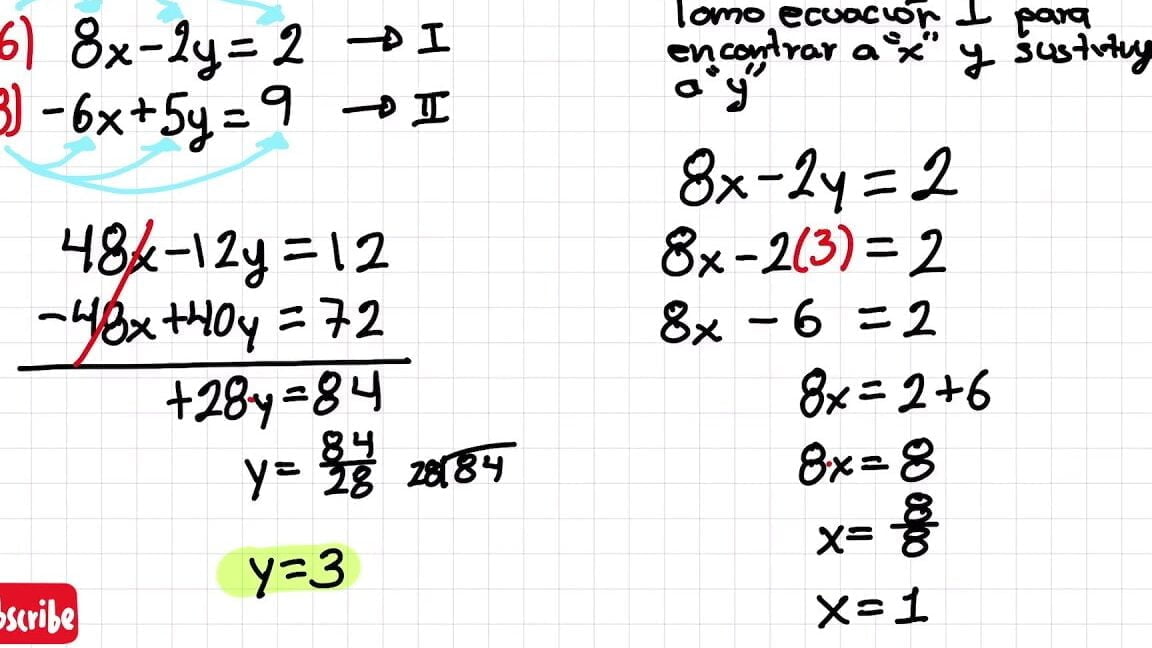 6) 8x-2y=2 → I
8) -6x+5y=9 → II
48x-12y=12
-48x+40y=72
+28·y=84
y=84/28 28√84
y=3
Tomo ecuación I para
encontrar a "x" y sustituy
a "y"
8x-2y=2
8x-2(3)=2
8x-6=2
8x=2+6
8·x=8
x=8/8
x=1
bscribe